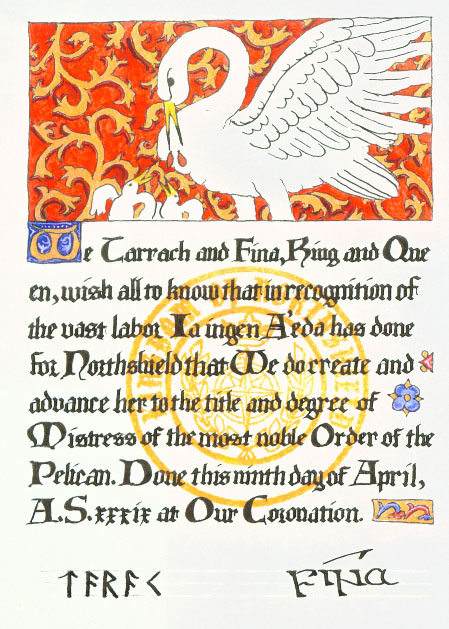 We Tarrach and Fina, King and Que
en, wish all to know that in recognition of
the vast labor Ia ingen A'eda has done
for Northshield that We do create and
advance her to the title and degree of
Mistress of the most noble Order of the
Pelican. Done this ninth day of April,
A.S. xxxix at Our Coronation.
ᛏᚨᚱᚨᚲ
Fina